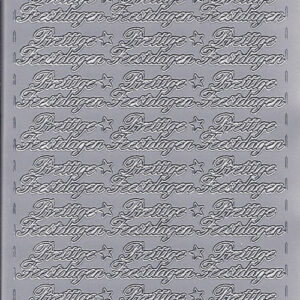 Prettige Prettige Prettige
Feestdagen Feestdagen Feestdagen
Prettige Prettige Prettige
Feestdagen Feestdagen Feestdagen
Prettige Prettige Prettige
Feestdagen Feestdagen Feestdagen
Prettige Prettige Prettige
Feestdagen Feestdagen Feestdagen
Prettige Prettige Prettige
Feestdagen Feestdagen Feestdagen
Prettige Prettige Prettige
Feestdagen Feestdagen Feestdagen
Prettige Prettige Prettige
Feestdagen Feestdagen Feestdagen